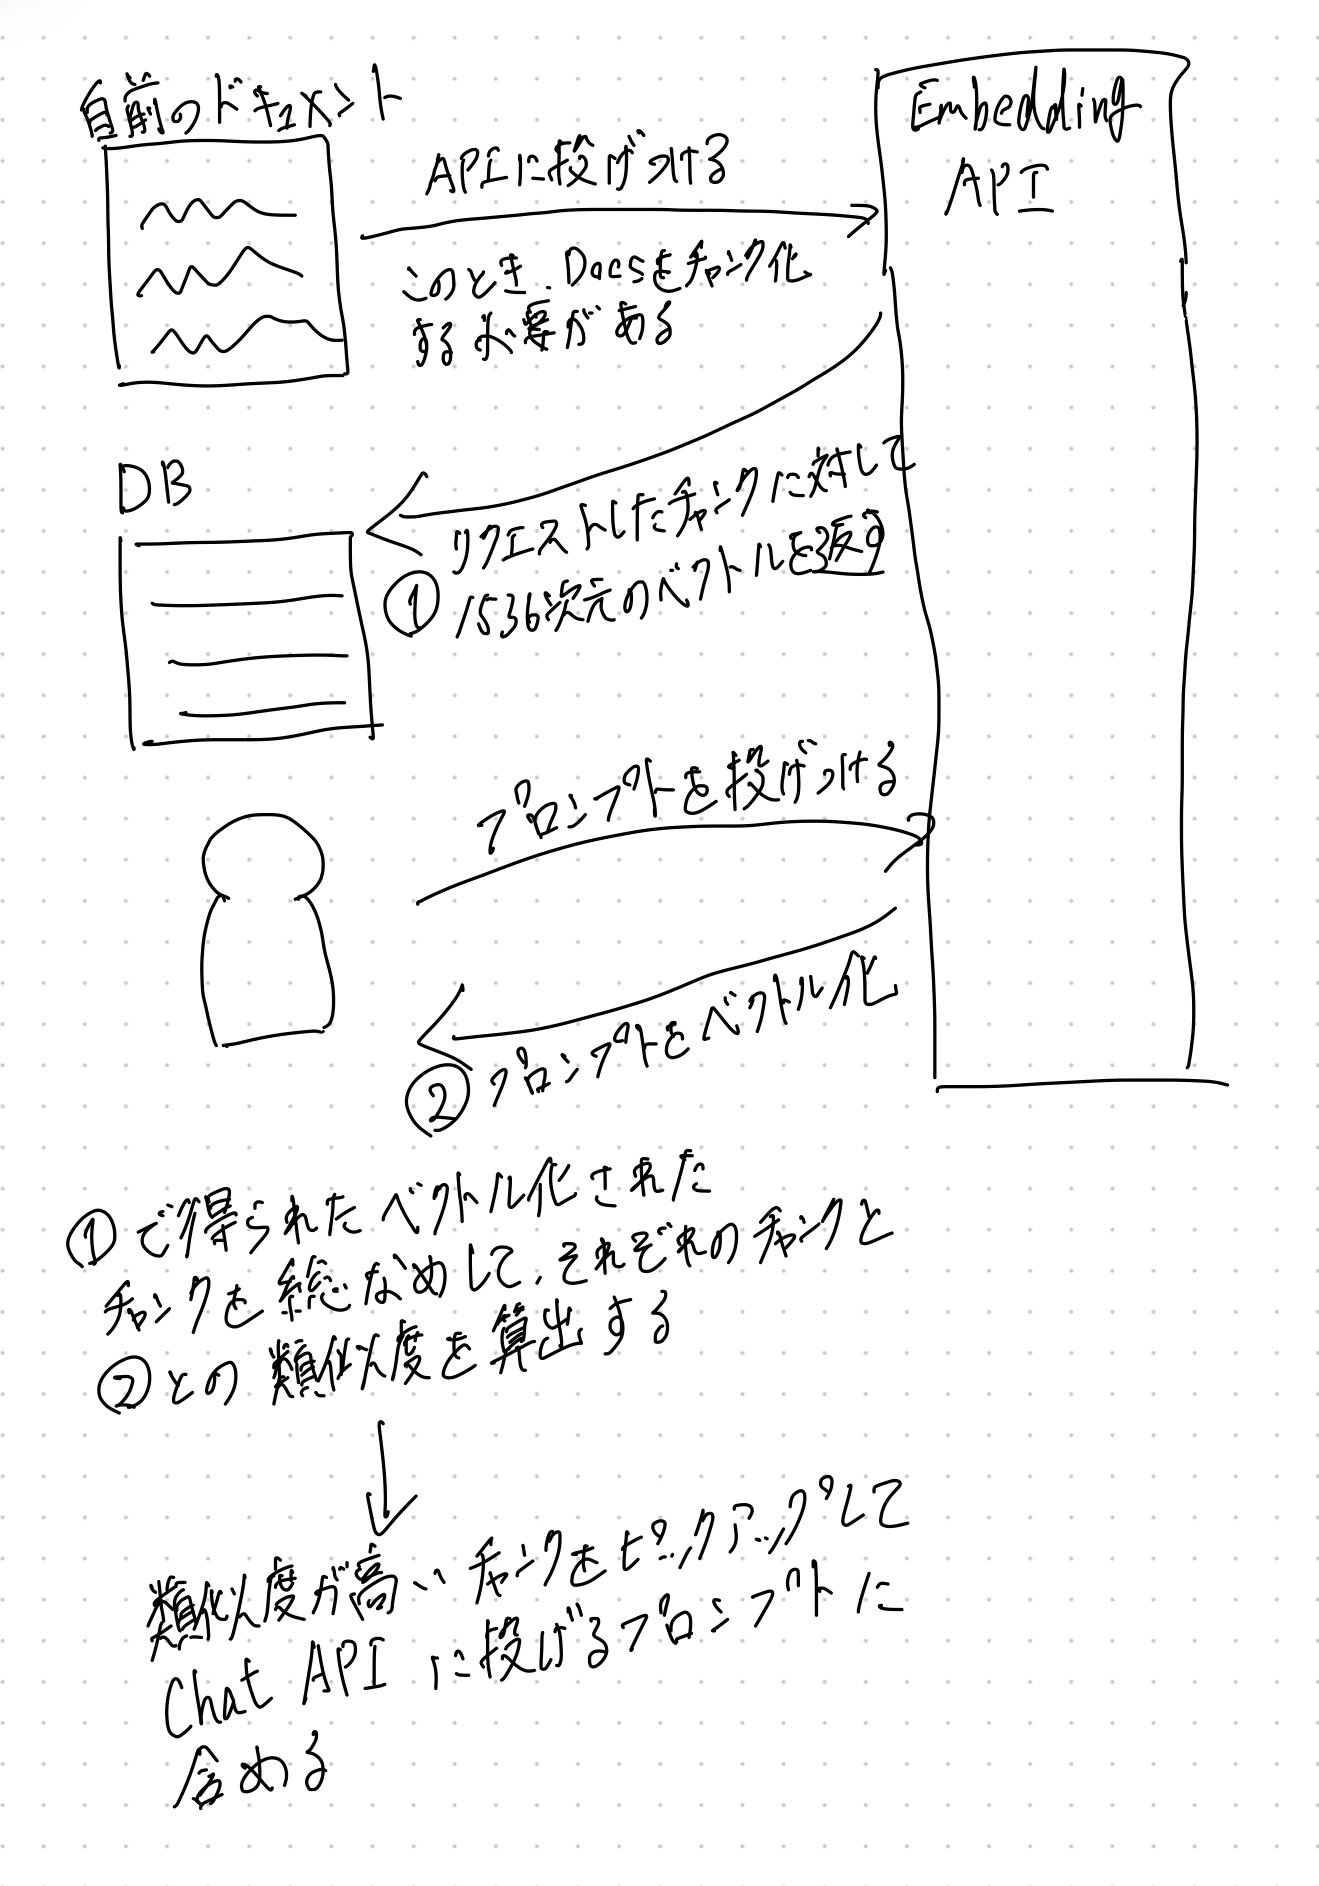 自前のドキュメント
Embedding
API
APIに投げつける
このとき、Docsをチャンク化
する必要がある
DB
リクエストしたチャンクに対して
① 1536次元のベクトルを返す
プロンプトを投げつける
② プロンプトをベクトル化
①で得られたベクトル化された
チャンクを総なめして、それぞれのチャンクと
②との類似度を算出する
類似度が高いチャンクをピックアップして
Chat APIに投げるプロンプトに
含める